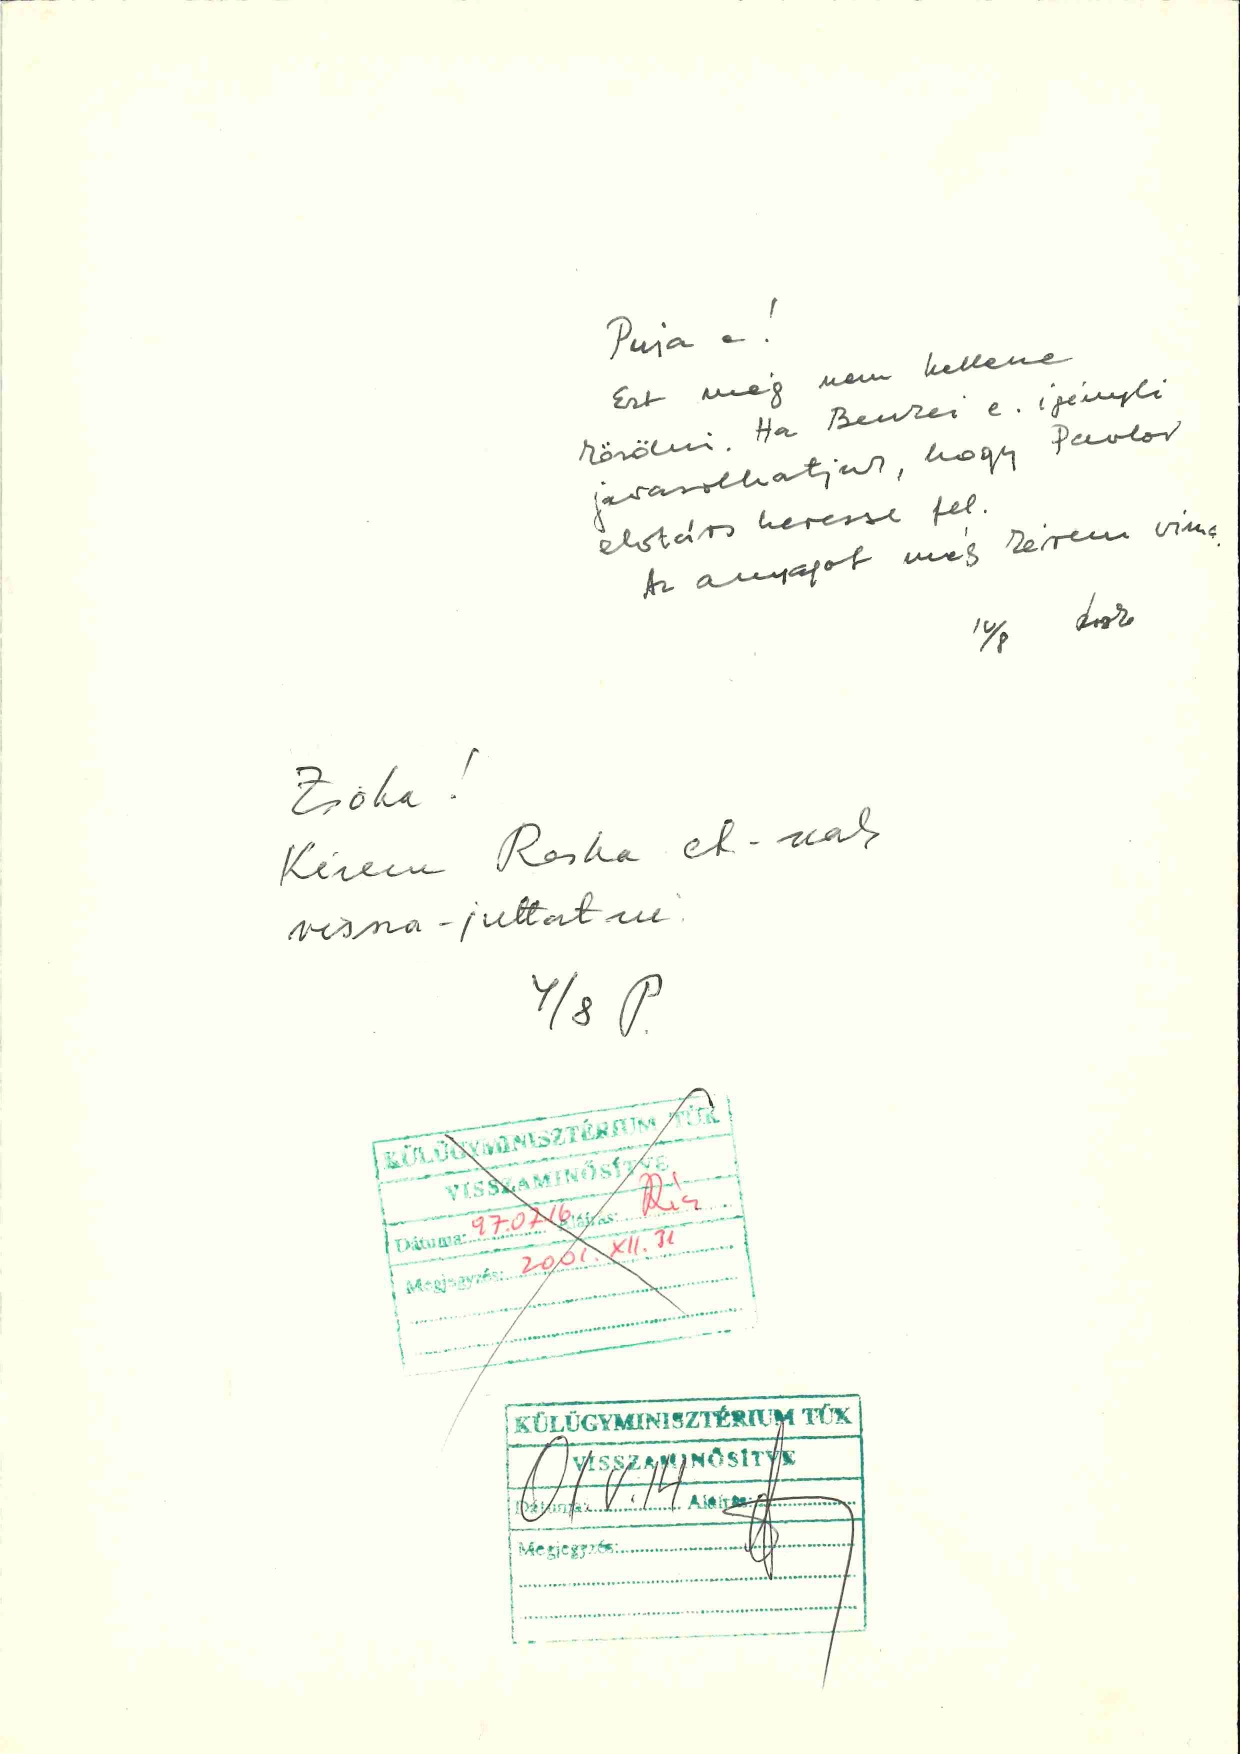 Puja e!
Ezt még nem kellene
közölni. Ha Benkei e. igényli
javasolhatjuk, hogy Pavlov
elvtárs keresse fel.
Az anyagot még kérem vissza.
14/8
Zsóka!
Kérem Roska et-nak
vissza-juttatni.
4/8 P.
KÜLÜGYMINISZTÉRIUM TÜK
VISSZAMINŐSÍTVE
Dátuma: 97.07.16 Aláírás:
Megjegyzés: 2001. XII. 31
KÜLÜGYMINISZTÉRIUM TÜK
VISSZAMINŐSÍTVE
Dátuma: 01 V. 14 Aláírás:
Megjegyzés: